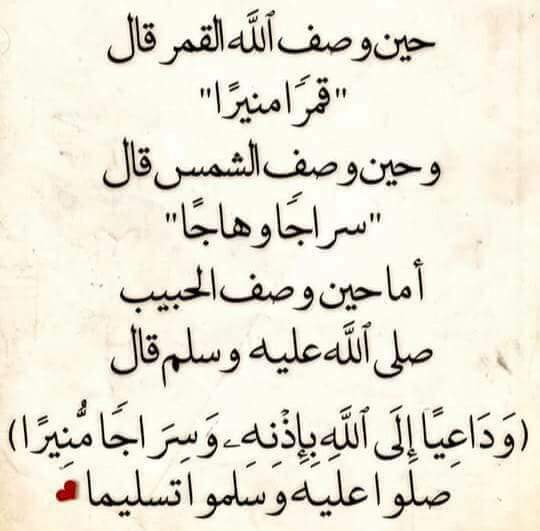 حين وصف ٱللَّه القمر قال
"قمرًا منيرًا"
وحين وصف الشمس قال
"سراجًا وهاجًا"
أما حين وصف الحبيب
صلى ٱللَّه عليه وسلم قال
(وَدَاعِيًا إِلَى ٱللَّهِ بِإِذْنِهِۦ وَسِرَاجًا مُّنِيرًا)
صلوا عليه وسلموا تسليما